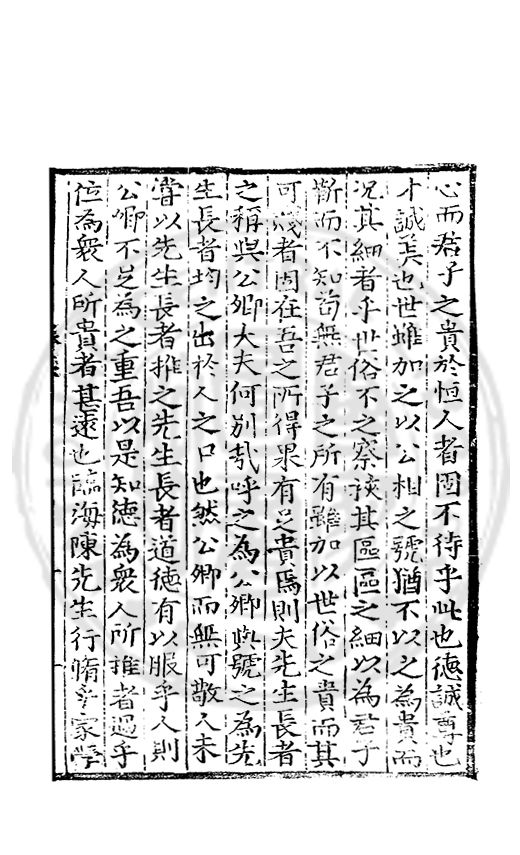 心而君子之貴於恒人者固不待乎此也徳誠尊也
才誠美也世雖加之以公相之號猶不以之為貴而
况其細者乎世俗不之察挾其區區之細以為君子
慚而不知苟無君子之所有雖加以世俗之貴而其
可淺者固在吾之所得果有足貴焉則夫先生長者
之稱與公卿大夫何别㢤呼之為公卿與號之為先
生長者均之出於人之口也然公卿而無可敬人未
嘗以先生長者推之先生長者道徳有以服乎人則
公卿不足為之重吾以是知徳為衆人所推者過乎
位為衆人所貴者甚遠也臨海陳先生行脩乎家學